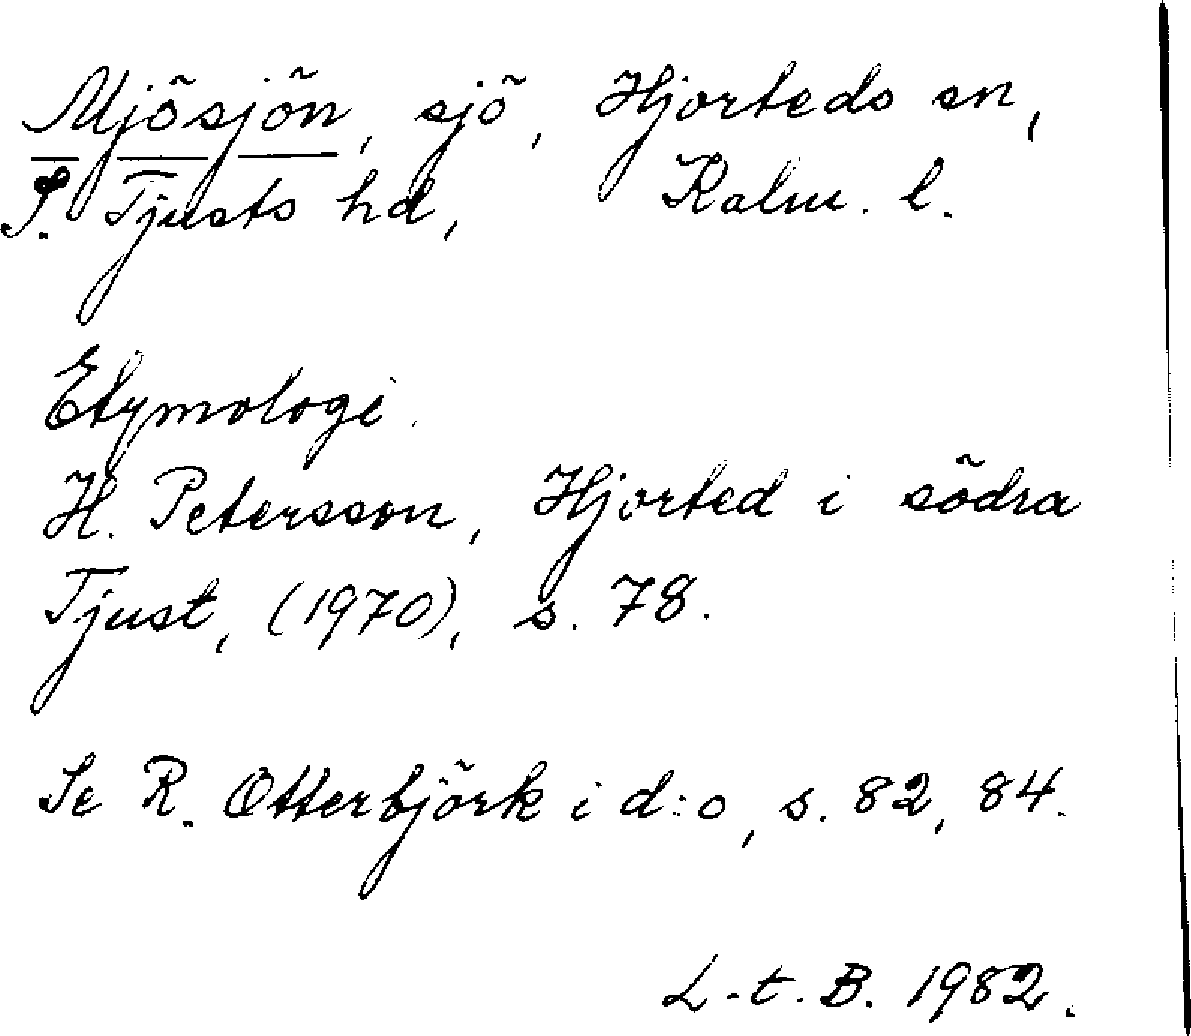 Mjösjön, sjö, Hjorteds sn,
S. Tjusts hd, Kalm. l.
Etymologi.
H. Petersson, Hjorted i södra
Tjust, (1970), s. 78.
Se R. Otterbjörk i d:o, s. 82, 84.
L-t. B. 1982.